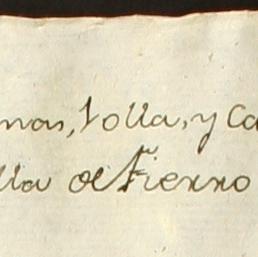 mas, 1 olla, y Ca
lla de Fierro